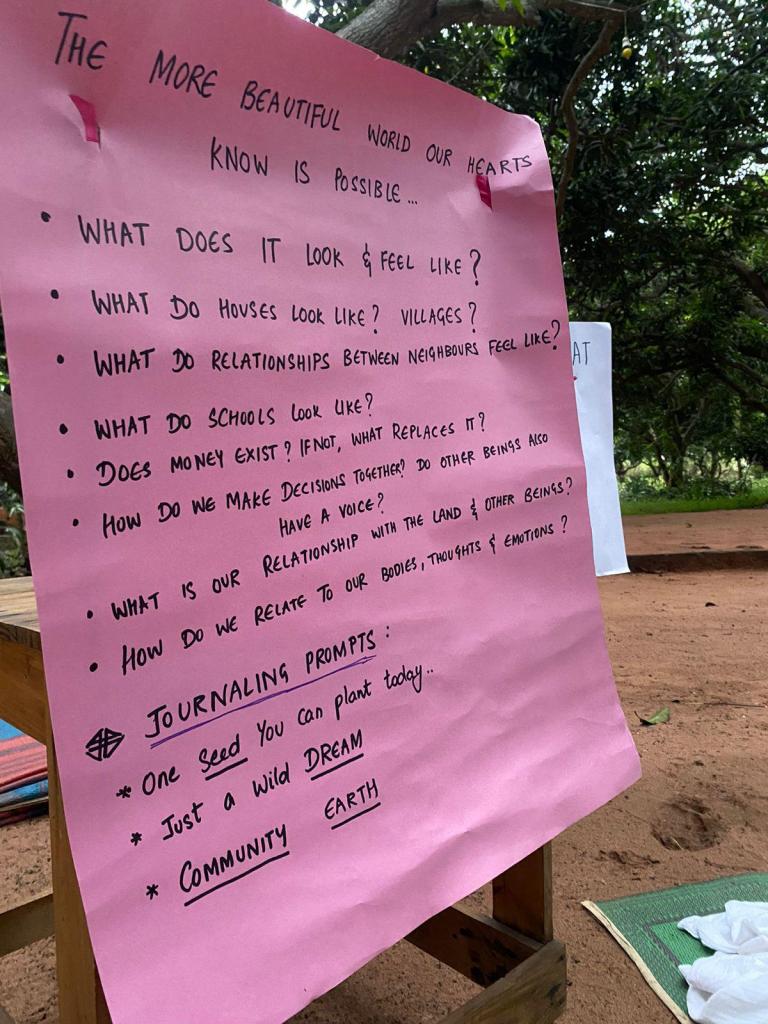 THE MORE BEAUTIFUL WORLD OUR HEARTS
KNOW IS POSSIBLE...
• WHAT DOES IT LOOK & FEEL LIKE?
• WHAT DO HOUSES LOOK LIKE? VILLAGES?
• WHAT DO RELATIONSHIPS BETWEEN NEIGHBOURS FEEL LIKE?
• WHAT DO SCHOOLS LOOK LIKE?
• DOES MONEY EXIST? IF NOT, WHAT REPLACES IT?
• HOW DO WE MAKE DECISIONS TOGETHER? DO OTHER BEINGS ALSO
HAVE A VOICE?
• WHAT IS OUR RELATIONSHIP WITH THE LAND & OTHER BEINGS?
• HOW DO WE RELATE TO OUR BODIES, THOUGHTS & EMOTIONS?
JOURNALING PROMPTS:
* One Seed You can plant today..
* Just a Wild DREAM
* COMMUNITY EARTH
AT